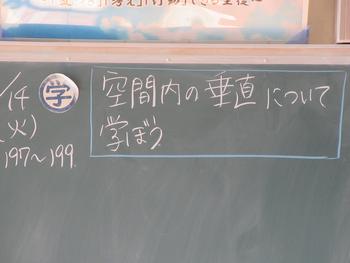 /14
(火)
197~199
学
空間内の垂直について
学ぼう